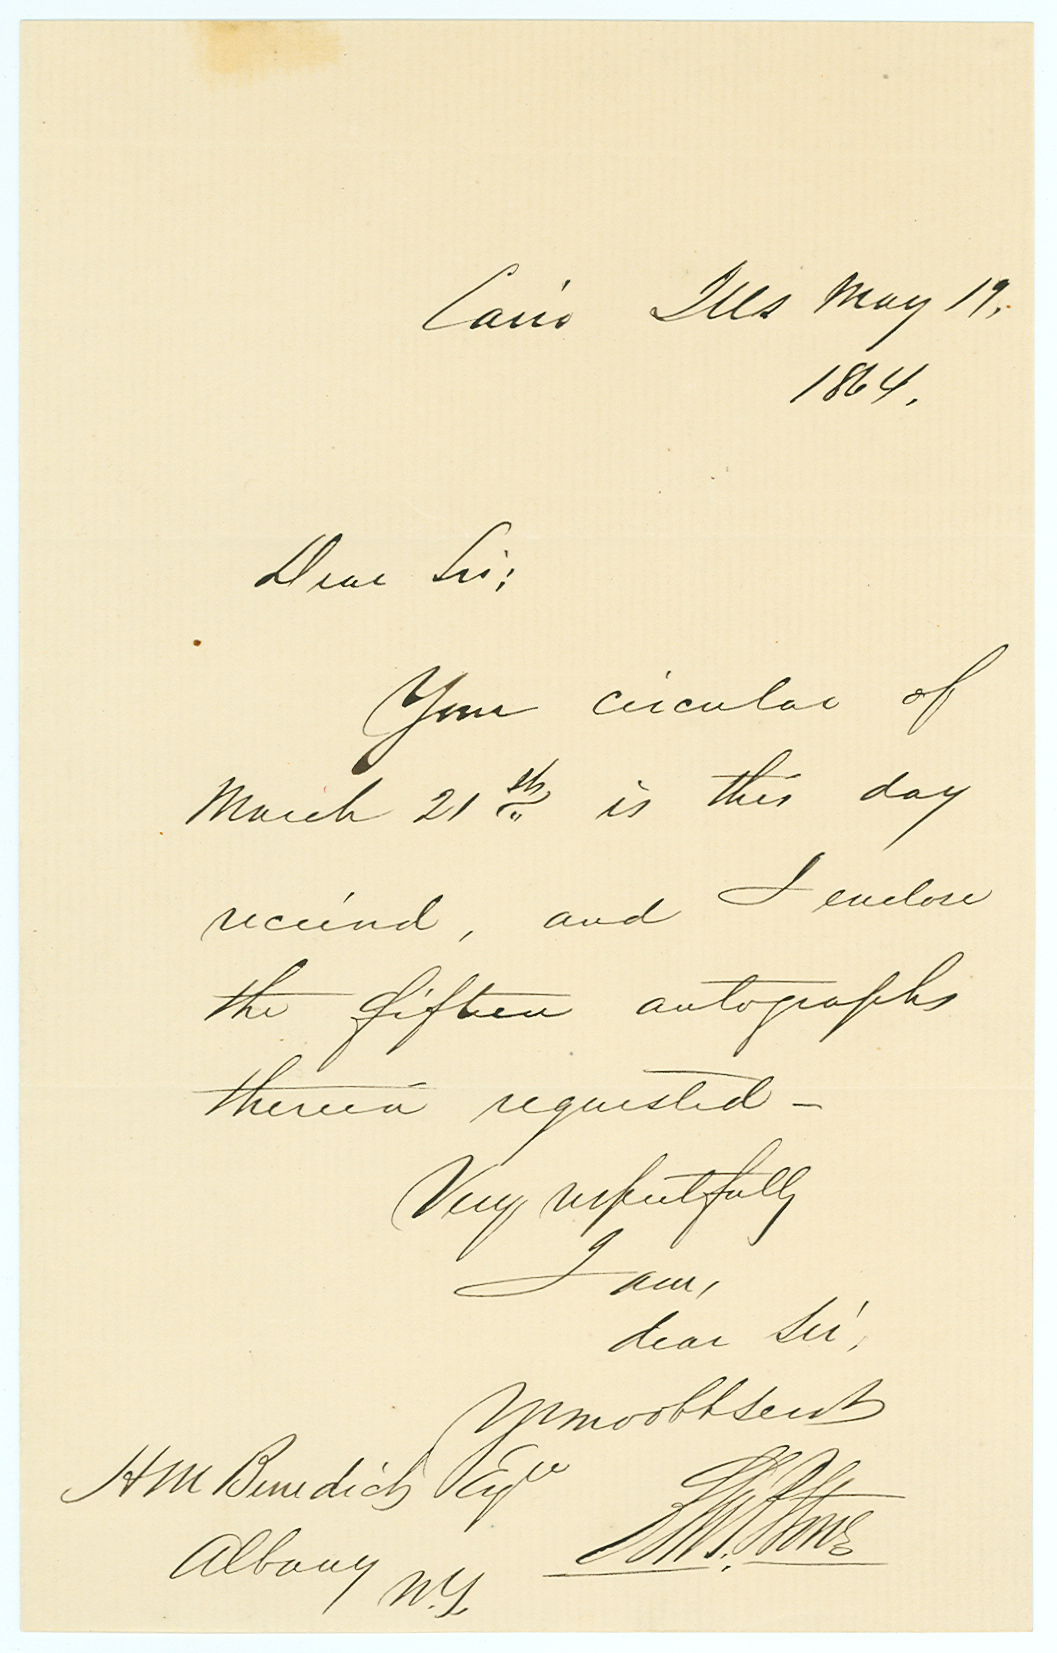 Cairo Ills May 19.
1864.
Dear Sir;
Your circular of
March 21st is this day
received, and I enclose
the fifteen autographs
therein requested –
Very respectfully
I am,
dear Sir,
Yr mo obt servt
H M Benedict Esqre
Albany N.Y.